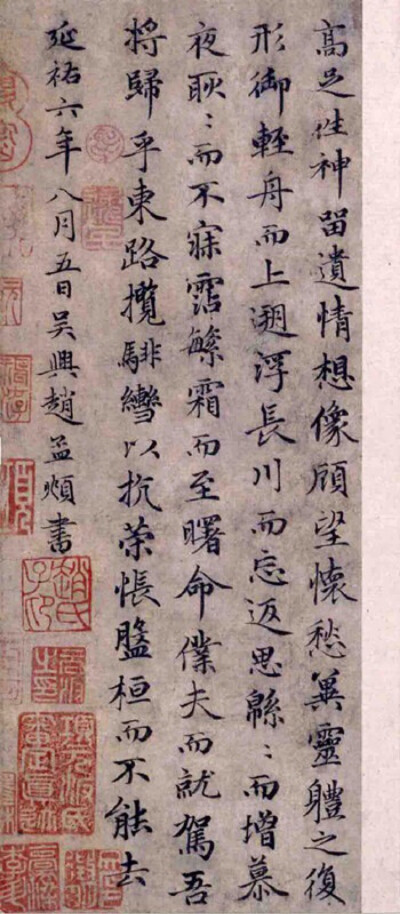 高足往神留遺情想像顧望懷愁冀靈體之復
形御輕舟而上遡浮長川而忘返思緜〻而增慕
夜耿〻而不寐霑繁霜而至曙命僕夫而就駕吾
將歸乎東路攬騑轡以抗策悵盤桓而不能去
延祐六年八月五日吳興趙孟頫書
趙氏子印